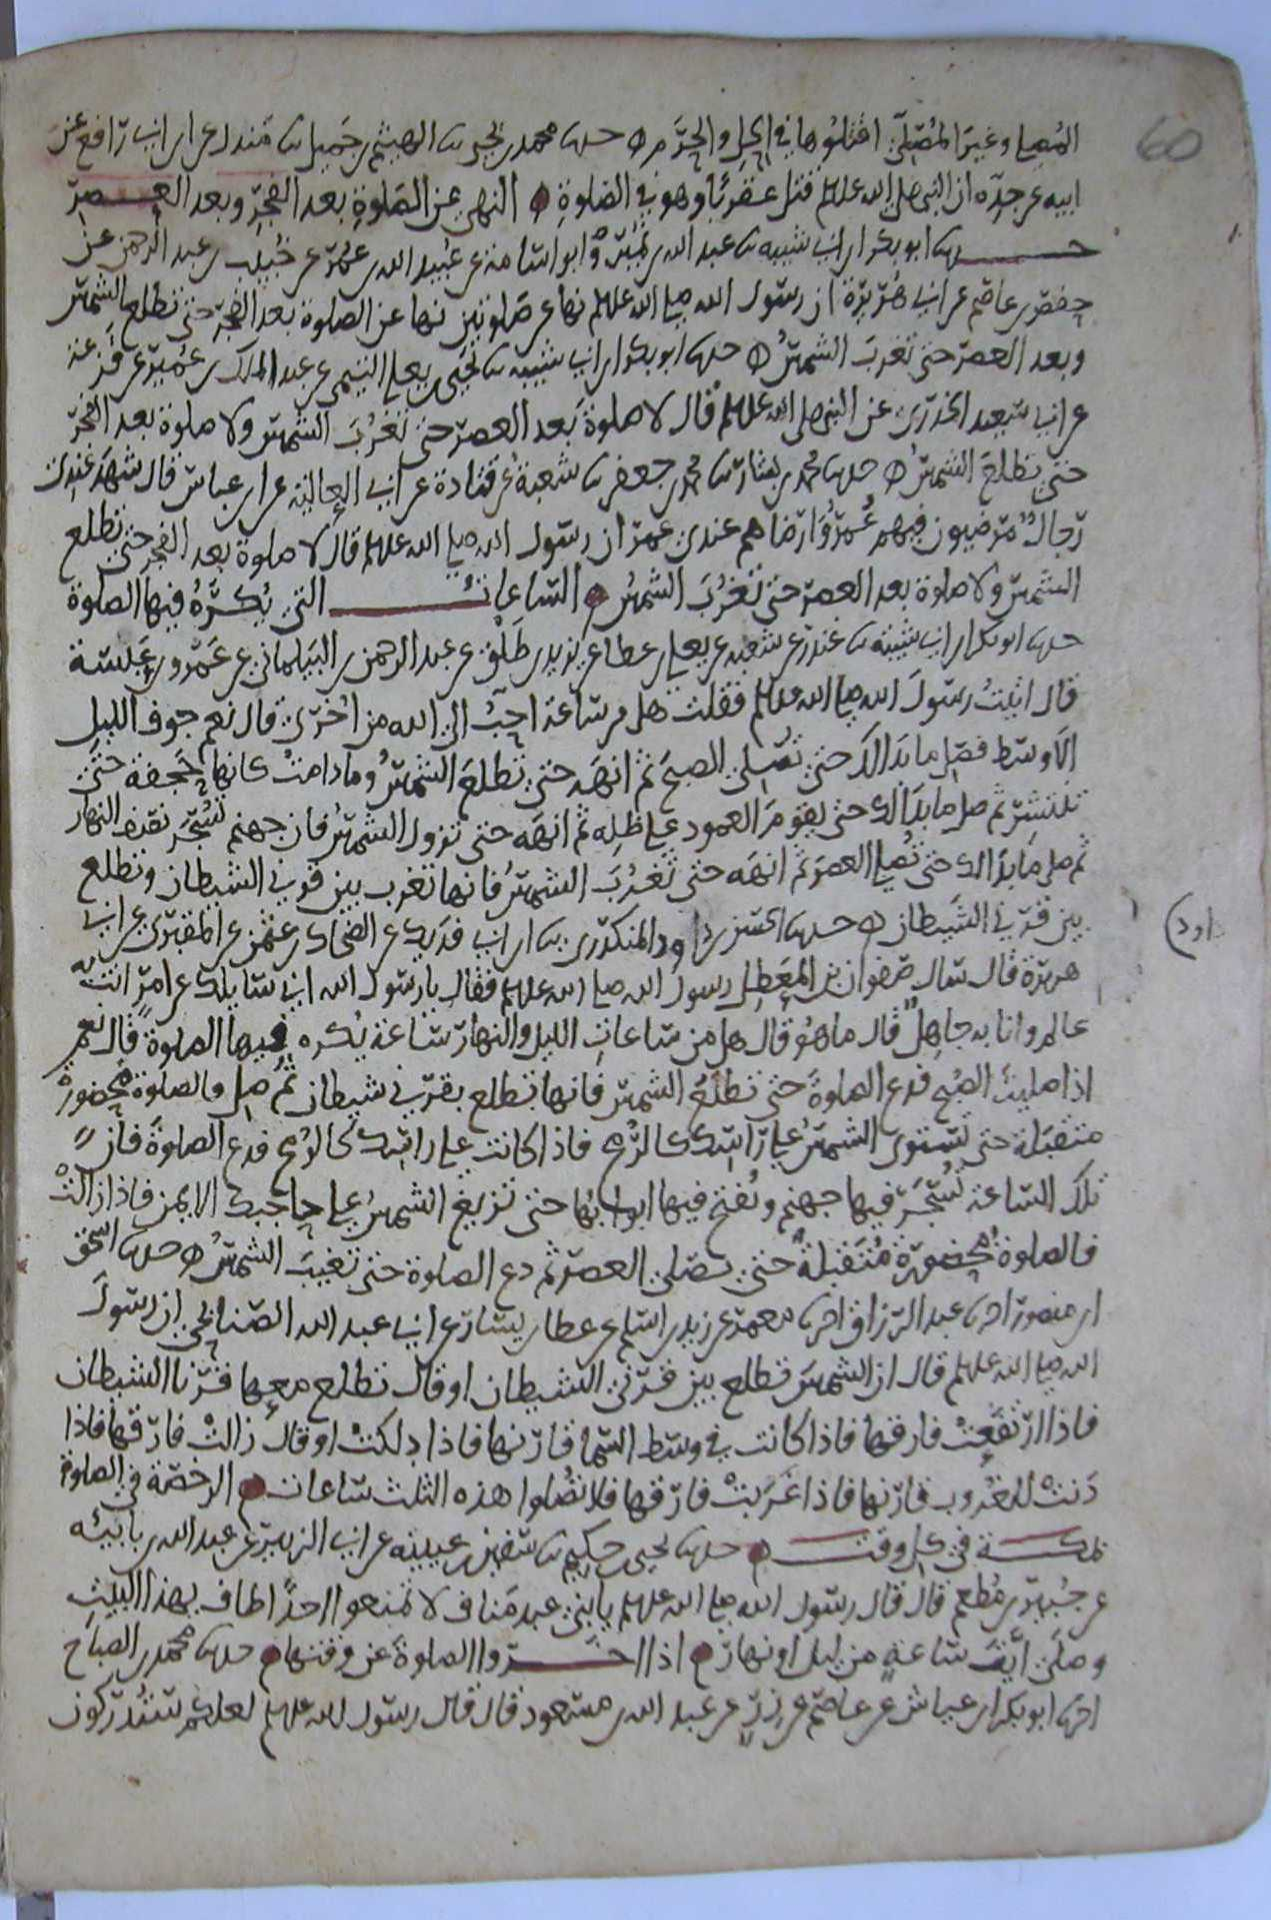 60
المصلي وغير المصلي اقتلوها في الحل والحرم حدثنا محمد بن يحيى ثنا الهيثم بن جميل ثنا مندل عن ابن ابي رافع عن
ابيه عن جده ان النبي صلى الله عليه وسلم قتل عقربا وهو في الصلوة النهي عن الصلوة بعد الفجر وبعد العصر
حدثنا ابو بكر ابن ابي شيبة ثنا عبد الله بن نمير وابو اسامة عن عبيد الله بن عمر عن خبيب بن عبد الرحمن عن
حفص بن عاصم عن ابي هريرة ان رسول الله صلى الله عليه وسلم نها عن صلوتين نها عن الصلوة بعد الفجر حتى تطلع الشمس
وبعد العصر حتى تغرب الشمس حدثنا ابو بكر ابن ابي شيبة ثنا يحيى بن يعلى التيمي عن عبد الملك بن عمير عن قزعة
عن ابي سعيد الخدري عن النبي صلى الله عليه وسلم قال لا صلوة بعد العصر حتى تغرب الشمس ولا صلوة بعد الفجر
حتى تطلع الشمس حدثنا محمد بن بشار ثنا محمد بن جعفر ثنا شعبة عن قتادة عن ابي العالية عن ابن عباس قال شهد عندي
رجال مرضيون فيهم عمر وارضاهم عندي عمر ان رسول الله صلى الله عليه وسلم قال لا صلوة بعد الفجر حتى تطلع
الشمس ولا صلوة بعد العصر حتى تغرب الشمس الساعات التي يكره فيها الصلوة
حدثنا ابو بكر ابن ابي شيبة ثنا غندر عن شعبة عن يعلى بن عطا عن يزيد بن طلق عن عبد الرحمن بن البيلماني عن عمرو بن عبسة
قال اتيت رسول الله صلى الله عليه وسلم فقلت هل من ساعة احب الى الله من اخرى قال نعم جوف الليل
الاوسط فصل ما بدا لك حتى تصلي الصبح ثم انهه حتى تطلع الشمس وما دامت كانها حجفة حتى
تنتشر ثم صل ما بدا لك حتى يقوم العمود على ظله ثم انهه حتى تزول الشمس فان جهنم تسجر نصف النهار
ثم صل ما بدا لك حتى تصلي العصر ثم انهه حتى تغرب الشمس فانها تغرب بين قرني الشيطان وتطلع
بين قرني الشيطان حدثنا الحسن بن داود المنكدري ثنا ابن ابي فديك عن الضحاك بن عثمن عن المقبري عن ابي
داود
هريرة قال سال صفوان بن المعطل رسول الله صلى الله عليه وسلم فقال يا رسول الله اني سايلك عن امر انت به
عالم وانا به جاهل قال ما هو قال هل من ساعات الليل والنهار ساعة يكره فيها الصلوة قال نعم
اذا صليت الصبح فدع الصلوة حتى تطلع الشمس فانها تطلع بقرني شيطان ثم صل فالصلوة محضورة
متقبلة حتى تستوي الشمس على راسك كالرمح فاذا كانت على راسك كالرمح فدع الصلوة فان
تلك الساعة تسجر فيها جهنم وتفتح فيها ابوابها حتى تزيغ الشمس على حاجبك الايمن فاذا زالت
فالصلوة محضورة متقبلة حتى تصلي العصر ثم دع الصلوة حتى تغيب الشمس حدثنا اسحق
ابن منصور اخبرنا عبد الرزاق اخبرنا معمر عن زيد بن اسلم عن عطا بن يسار عن ابي عبد الله الصنابحي ان رسول
الله صلى الله عليه وسلم قال ان الشمس تطلع بين قرني الشيطان او قال تطلع معها قرنا الشيطان
فاذا ارتفعت فارقها فاذا كانت في وسط السما قارنها فاذا دلكت او قال زالت فارقها فاذا
دنت للغروب قارنها فاذا غربت فارقها فلا تصلوا هذه الثلث ساعات الرخصة في الصلوة
بمكة في كل وقت حدثنا يحيى بن حكيم ثنا سفين بن عيينة عن ابي الزبير عن عبد الله بن بابيه
عن جبير بن مطعم قال قال رسول الله صلى الله عليه وسلم يا بني عبد مناف لا تمنعوا احدا طاف بهذا البيت
وصلى اية ساعة من ليل او نهار اذا اخروا الصلوة عن وقتها حدثنا محمد بن الصباح
اخبرنا ابو بكر ابن عياش عن عاصم عن زر عن عبد الله بن مسعود قال قال رسول الله صلى الله عليه وسلم لعلكم ستدركون